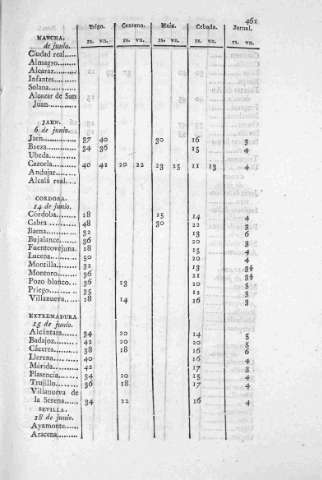 461
Trigo. Centeno. Maiz. Cebada. Jornal.
rs. vn. rs. vn. rs. vn. rs. vn. rs. vn.
MANCHA.
de junio.
Ciudad real.....
Almagro........
Alcaraz.........
Infantes........
Solana..........
Alcazar de San
Juan...........
JAEN.
6 de junio.
Jaen............ 37 40 30 16 3
Baeza.......... 34 36 15 4
Ubeda..........
Cazorla........ 40 42 20 22 23 25 11 13 4
Andujar........
Alcalá real....
CORDOBA.
14 de junio.
Córdoba........ 28 25 14 4
Cabra.......... 48 30 22 3
Baena.......... 32 13 6
Bujalance...... 36 20 3
Fuenteovejuna. 28 15 4
Lucena......... 50 20 4
Montilla....... 32 13
Montoro........ 36 21
Pozo blanco... 36 13 20 3
Priego......... 35 12 3
Villanueva..... 28 14 16 3
EXTREMADURA
25 de junio.
Alcántara...... 34 20 14 5
Badajoz........ 42 20 20 5
Cáceres........ 38 18 16 6
Llerena........ 40 16 4
Mérida......... 42 17 3
Plasencia...... 34 20 15 4
Truxillo....... 36 18 17 4
Villanueva de
la Serena...... 34 22 16 4
SEVILLA.
18 de junio.
Ayamonte......
Aracena........